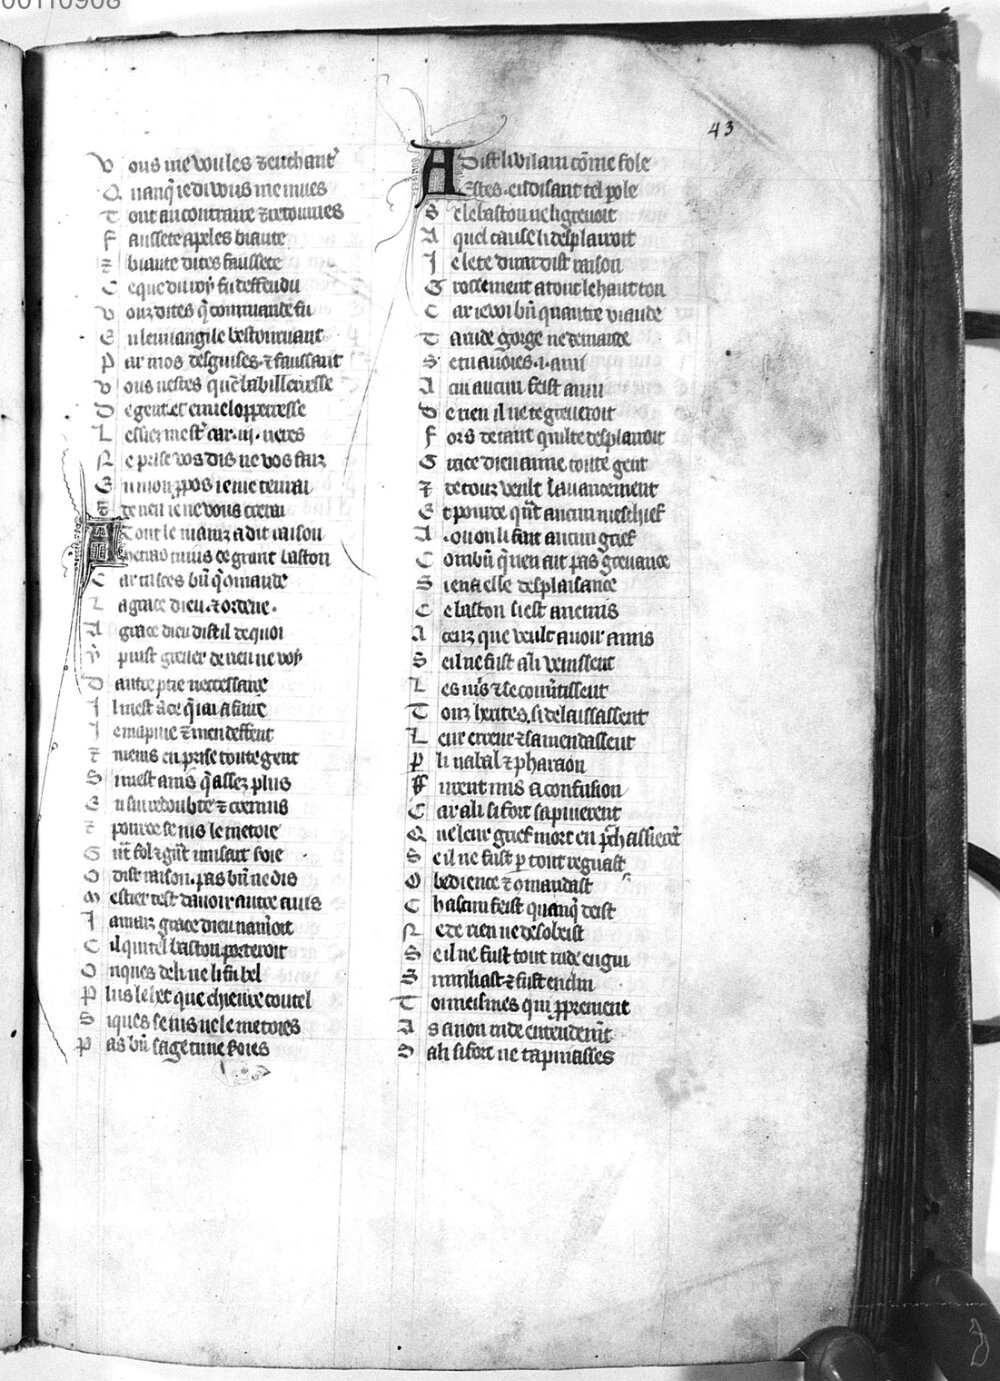 00110908
43
Vous me voules decichant᷒
Quanq̃ ie di vous me mues
Tout au contraire ⁊ retournes
Faussete apeles biaute
⁊ biaute dites faussete
Ce que du roy fu deffendu
Vouz dites q̃ commande fu
En leuuangile bestournant
Par mos desguises ⁊ faussant
Vous nestes que labilleresse
De gent et enuelopperesse
Lessier mest᷒ car .iij. neres
Ne prise vos dis ne vos faiz
En mon ꝓpos ie me tenrai
De rien ie ne vous crerai
Atout le mainz a dit raison
Car tu ces bñ q̃ omande
La grace dieu ⁊ ordene
A grace dieu dist il de quoi
Y puist greuer de rien ne voy
Dautre ptie neccessaire
Il nest a ce q̃ iai a faire
Ie mapuie ⁊ men deffent
⁊ mens en prise toute gent
Si mest auis q̃ assez plus
En sui redoubte ⁊ cremus
⁊ pource se ius le metoie
Gñt fol ⁊ gñt musart foie
O dist raison pas bñ ne dis
Mestier test dauoir autre auis
Iamaiz grace dieu naimoit
Cil qui tel baston porteroit
Onques deli ne li fu bel
Plus le het que chieure coutel
Si ques se ius ne le metoies
Pas bñ sage tu ne soies
A dist li vilain cõme fole
Estes en disant tel pole
Se le baston ne li greuoit
A quel cause li desplairoit
Ie le te dirai dist raison
Grossement a tout le haut ton
Car ie voi bñ quautre viande
Ta rude gorge ne demande
Se tu auoies .i. ami
A cui aucun feist anui
De rien il ne te greueroit
Fors de tant qui lte desplairoit
Grace dieu aime toute gent
⁊ de touz veult lauancement
Et pource qñt aucun meschief
A .ou on li fait aucun grief
Combñ q̃ nen ait pas greuance
Si en a elle desplaisance
Ce baston si est anemis
A ceuz que veult auoir amis
Se il ne fust a li venissent
Les mis ⁊ se conuertissent
Touz herites, si delaissassent
Leur erreur ⁊ samendassent
Par li nabal ⁊ pharaon
Furent mis a confusion
Car a li si fort sapuierent
Que leur grief mort en p̃chassierẽt
Se il ne fust p tout regnast
Obedience ⁊ omandast
Chascun feist quanq̃ deist
Ne de rien ne desobeist
Se il ne fust tout rude engin
Sumiliast ⁊ fust enclin
Toi meismes qui ꝓprement
As a non rude entendemt᷒
Sa li si fort ne tapuiasses